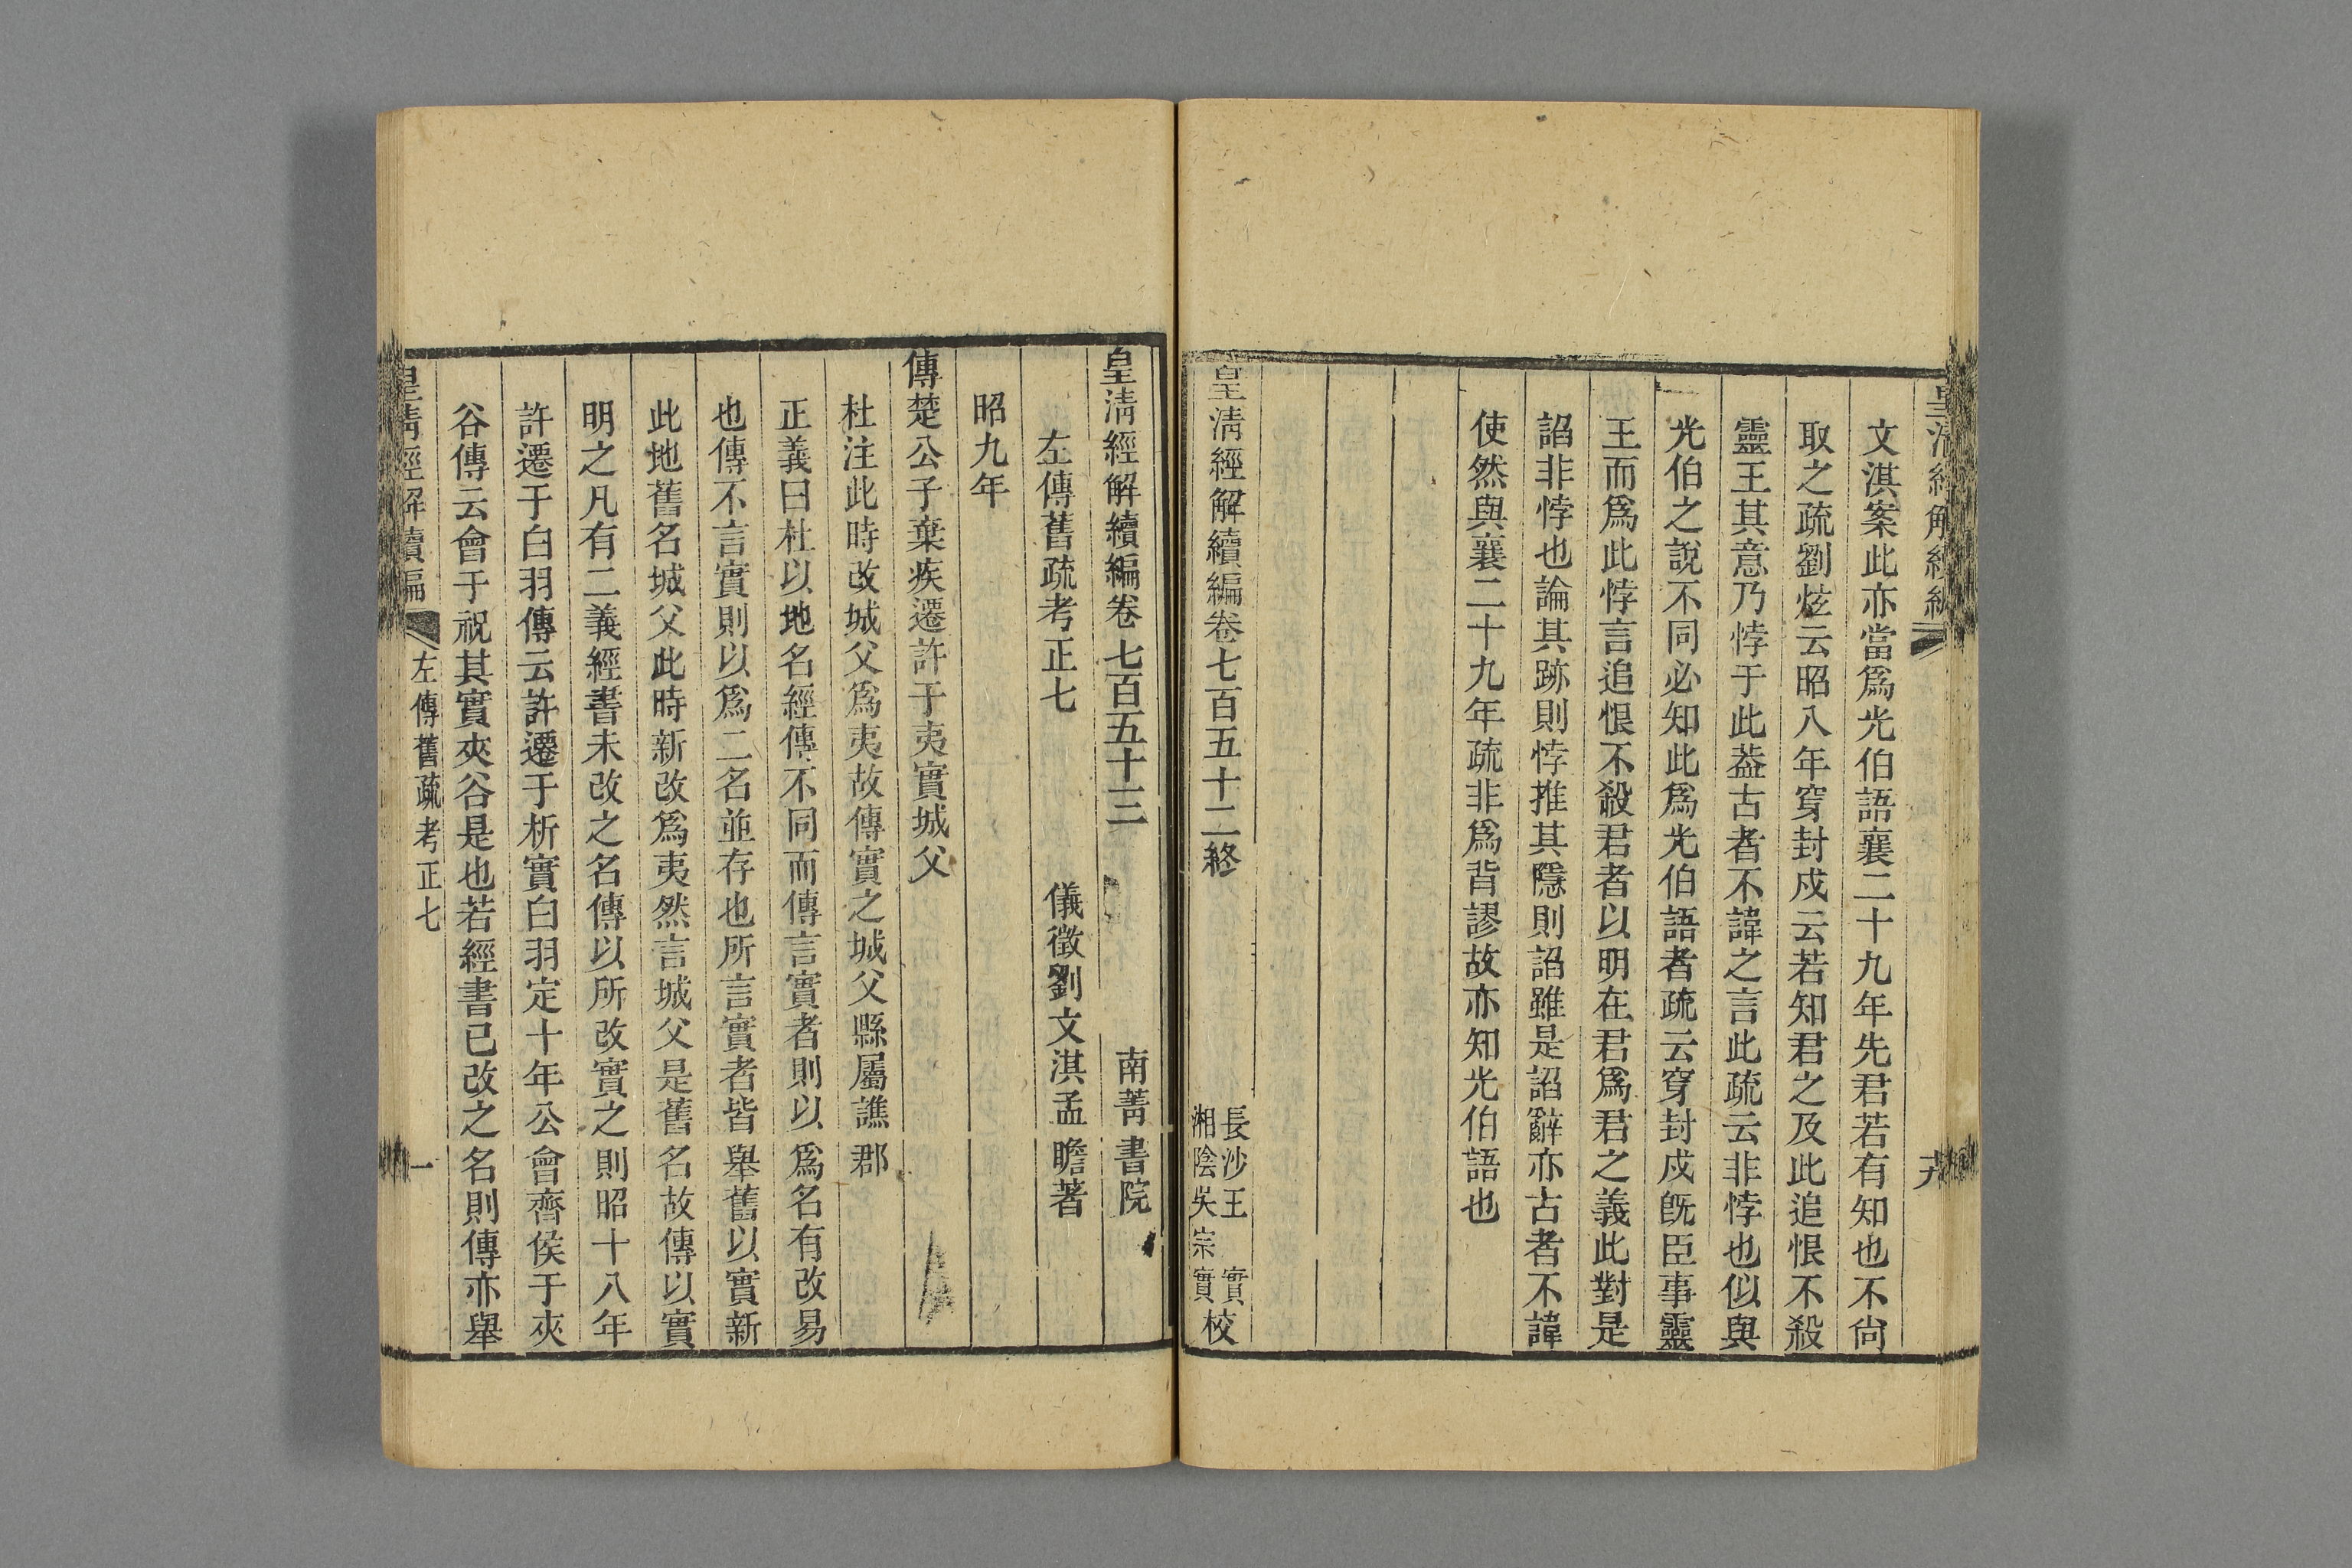 文淇案此亦當爲光伯語襄二十九年先君若有知也不尙
取之疏劉炫云昭八年穿封戍云若知君之及此追恨不殺
靈王其意乃悖于此葢古者不諱之言此疏云非悖也似與
光伯之說不同必知此爲光伯語者疏云穿封戍旣臣事靈
王而爲此悖言追恨不殺君者以明在君爲君之義此對是
諂非悖也論其跡則悖推其隱則諂雖是諂辭亦古者不諱
使然與襄二十九年疏非爲背謬故亦知光伯語也
皇淸經解續編卷七百五十二終
長沙王 實
湘陰吳宗實
校
皇淸經解續編卷七百五十三
南菁書院
左傳舊疏考正七
儀徵劉文淇孟瞻著
昭九年
傳楚公子棄疾遷許于夷實城父
杜注此時改城父爲夷故傳實之城父縣屬譙郡
正義曰杜以地名經傳不同而傳言實者則以爲名有改易
也傳不言實則以爲二名並存也所言實者皆舉舊以實新
此地舊名城父此時新改爲夷然言城父是舊名故傳以實
明之凡有二義經書未改之名傳以所改實之則昭十八年
許遷于白羽傳云許遷于析實白羽定十年公會齊侯于夾
谷傳云會于祝其實夾谷是也若經書已改之名則傳亦舉
皇淸經解續編
左傳舊疏考正七
一